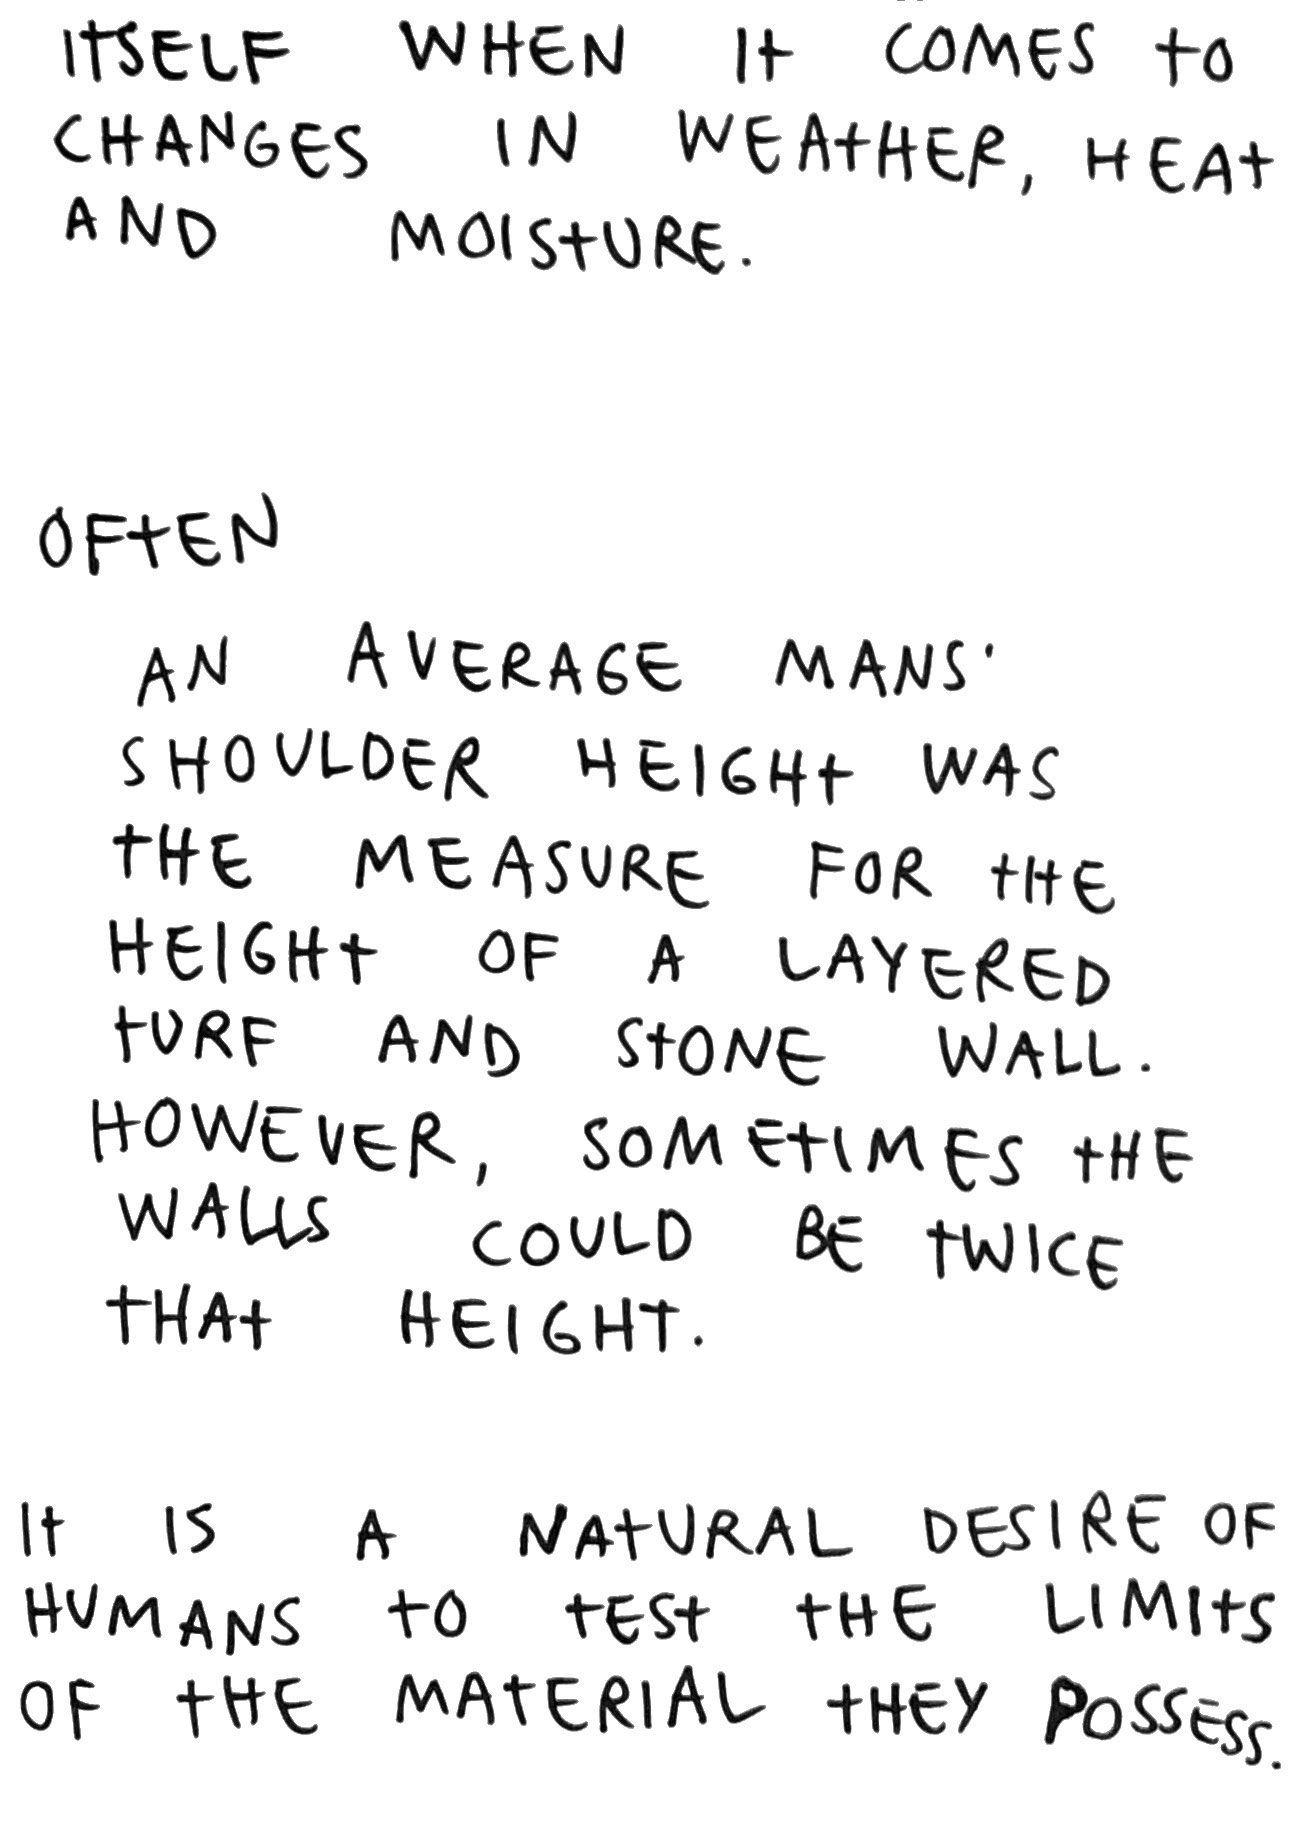 ITSELF WHEN IT COMES TO
CHANGES IN WEATHER, HEAT
AND MOISTURE.
OFTEN
AN AVERAGE MANS'
SHOULDER HEIGHT WAS
THE MEASURE FOR THE
HEIGHT OF A LAYERED
TURF AND STONE WALL.
HOWEVER, SOMETIMES THE
WALLS COULD BE TWICE
THAT HEIGHT.
IT IS A NATURAL DESIRE OF
HUMANS TO TEST THE LIMITS
OF THE MATERIAL THEY POSSESS.